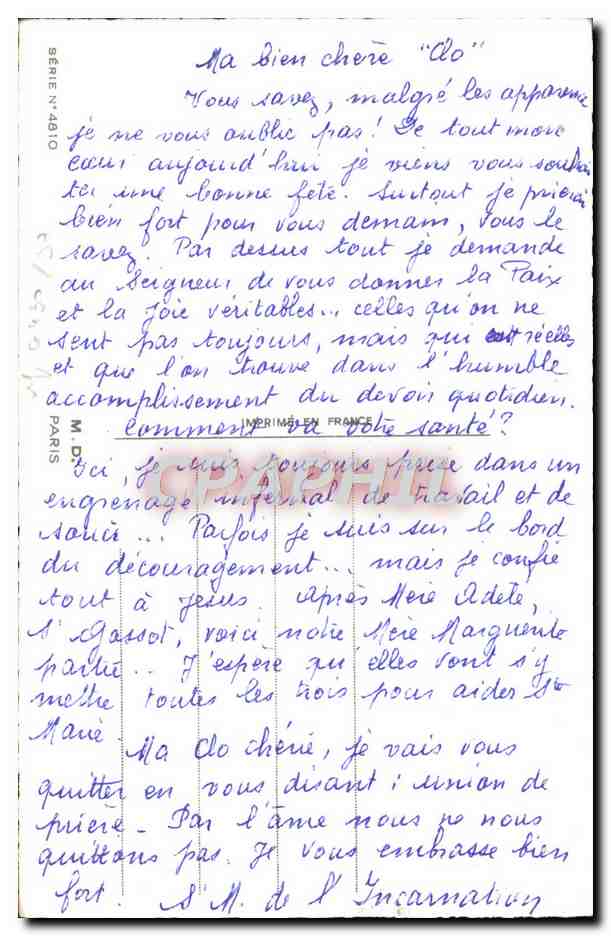 Ma bien chère "Clo"
Vous savez, malgré les apparences
je ne vous oublie pas! De tout mon
cœur aujourd'hui je viens vous souhai
ter une bonne fête. Surtout je prierai
bien fort pour vous demain, vous le
savez. Par dessus tout je demande
au Seigneur de vous donner la Paix
et la joie véritables... celles qu'on ne
sent pas toujours, mais qui sont réelles
et que l'on trouve dans l'humble
accomplissement du devoir quotidien.
Comment va votre santé?
Ici, je suis toujours prise dans un
engrenage infernal de travail et de
souci... Parfois je suis sur le bord
du découragement... mais je confie
tout à Jésus. Après Mère Adèle,
Sr Gassot, voici notre Mère Marguerite
partie... J'espère qu'elles vont s'y
mettre toutes les trois pour aider Ste
Marie.
Ma Clo chérie, je vais vous
quitter en vous disant : union de
prière - Par l'âme nous ne nous
quittons pas. Je vous embrasse bien
fort. Sr M. de l'Incarnation
SÉRIE N° 4810
M.D. PARIS
IMPRIMÉ EN FRANCE
CPARAMA